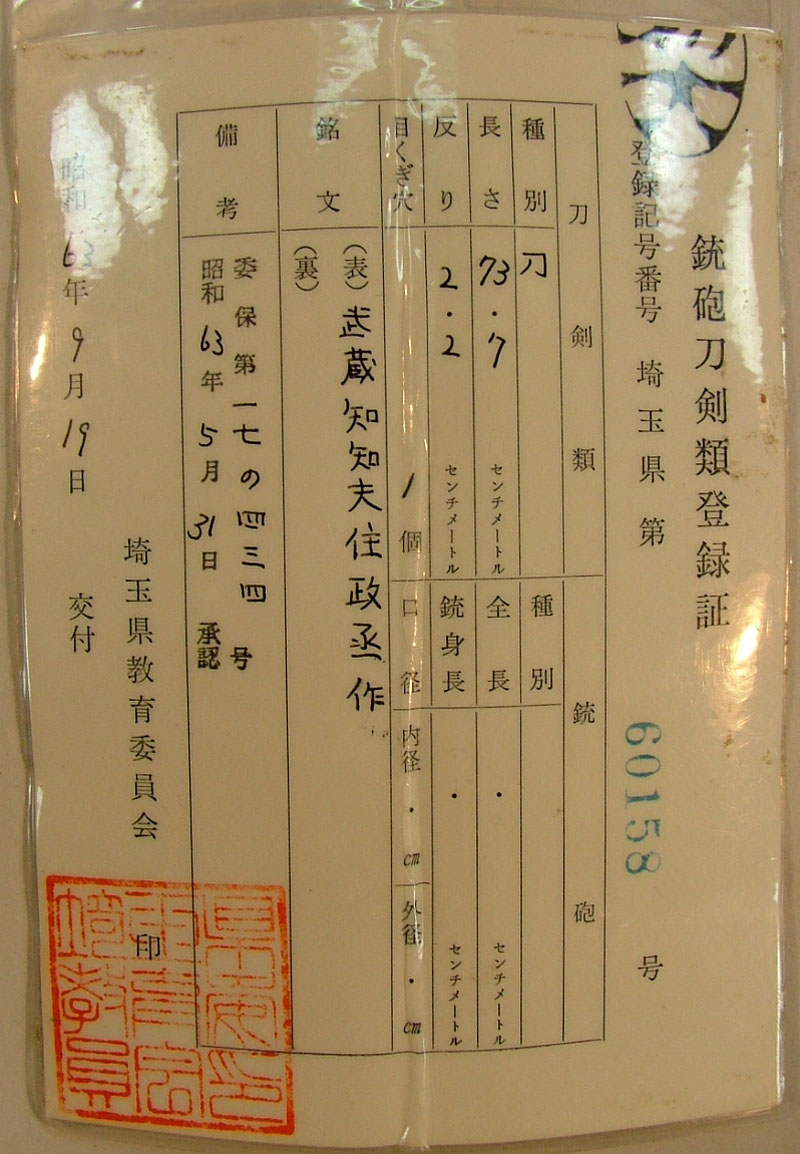 銃砲刀剣類登録証
登録記号番号 埼玉県 第 60158 号
刀剣類
種別 刀
長さ 73.7 センチメートル
反り 2.2 センチメートル
目くぎ穴 1個
銃砲
種別
全長 . センチメートル
銃身長 . センチメートル
口径 内径 . cm 外径 . cm
銘文
(表)武蔵知知夫住政丞作
(裏)
備考
委保第一七の四三四号
昭和63年5月31日 承認
昭和63年9月19日 交付
埼玉県教育委員会 印